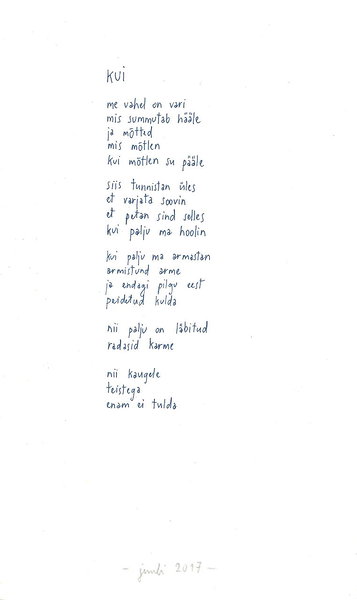 kui
me vahel on vari
mis summutab hääle
ja mõtted
mis mõtlen
kui mõtlen su pääle
siis tunnistan üles
et varjata soovin
et petan sind selles
kui palju ma hoolin
kui palju ma armastan
armistund arme
ja endagi pilgu eest
peidetud kulda
nii palju on läbitud
radasid karme
nii kaugele
teistega
enam ei tulda
- juuli 2017 -